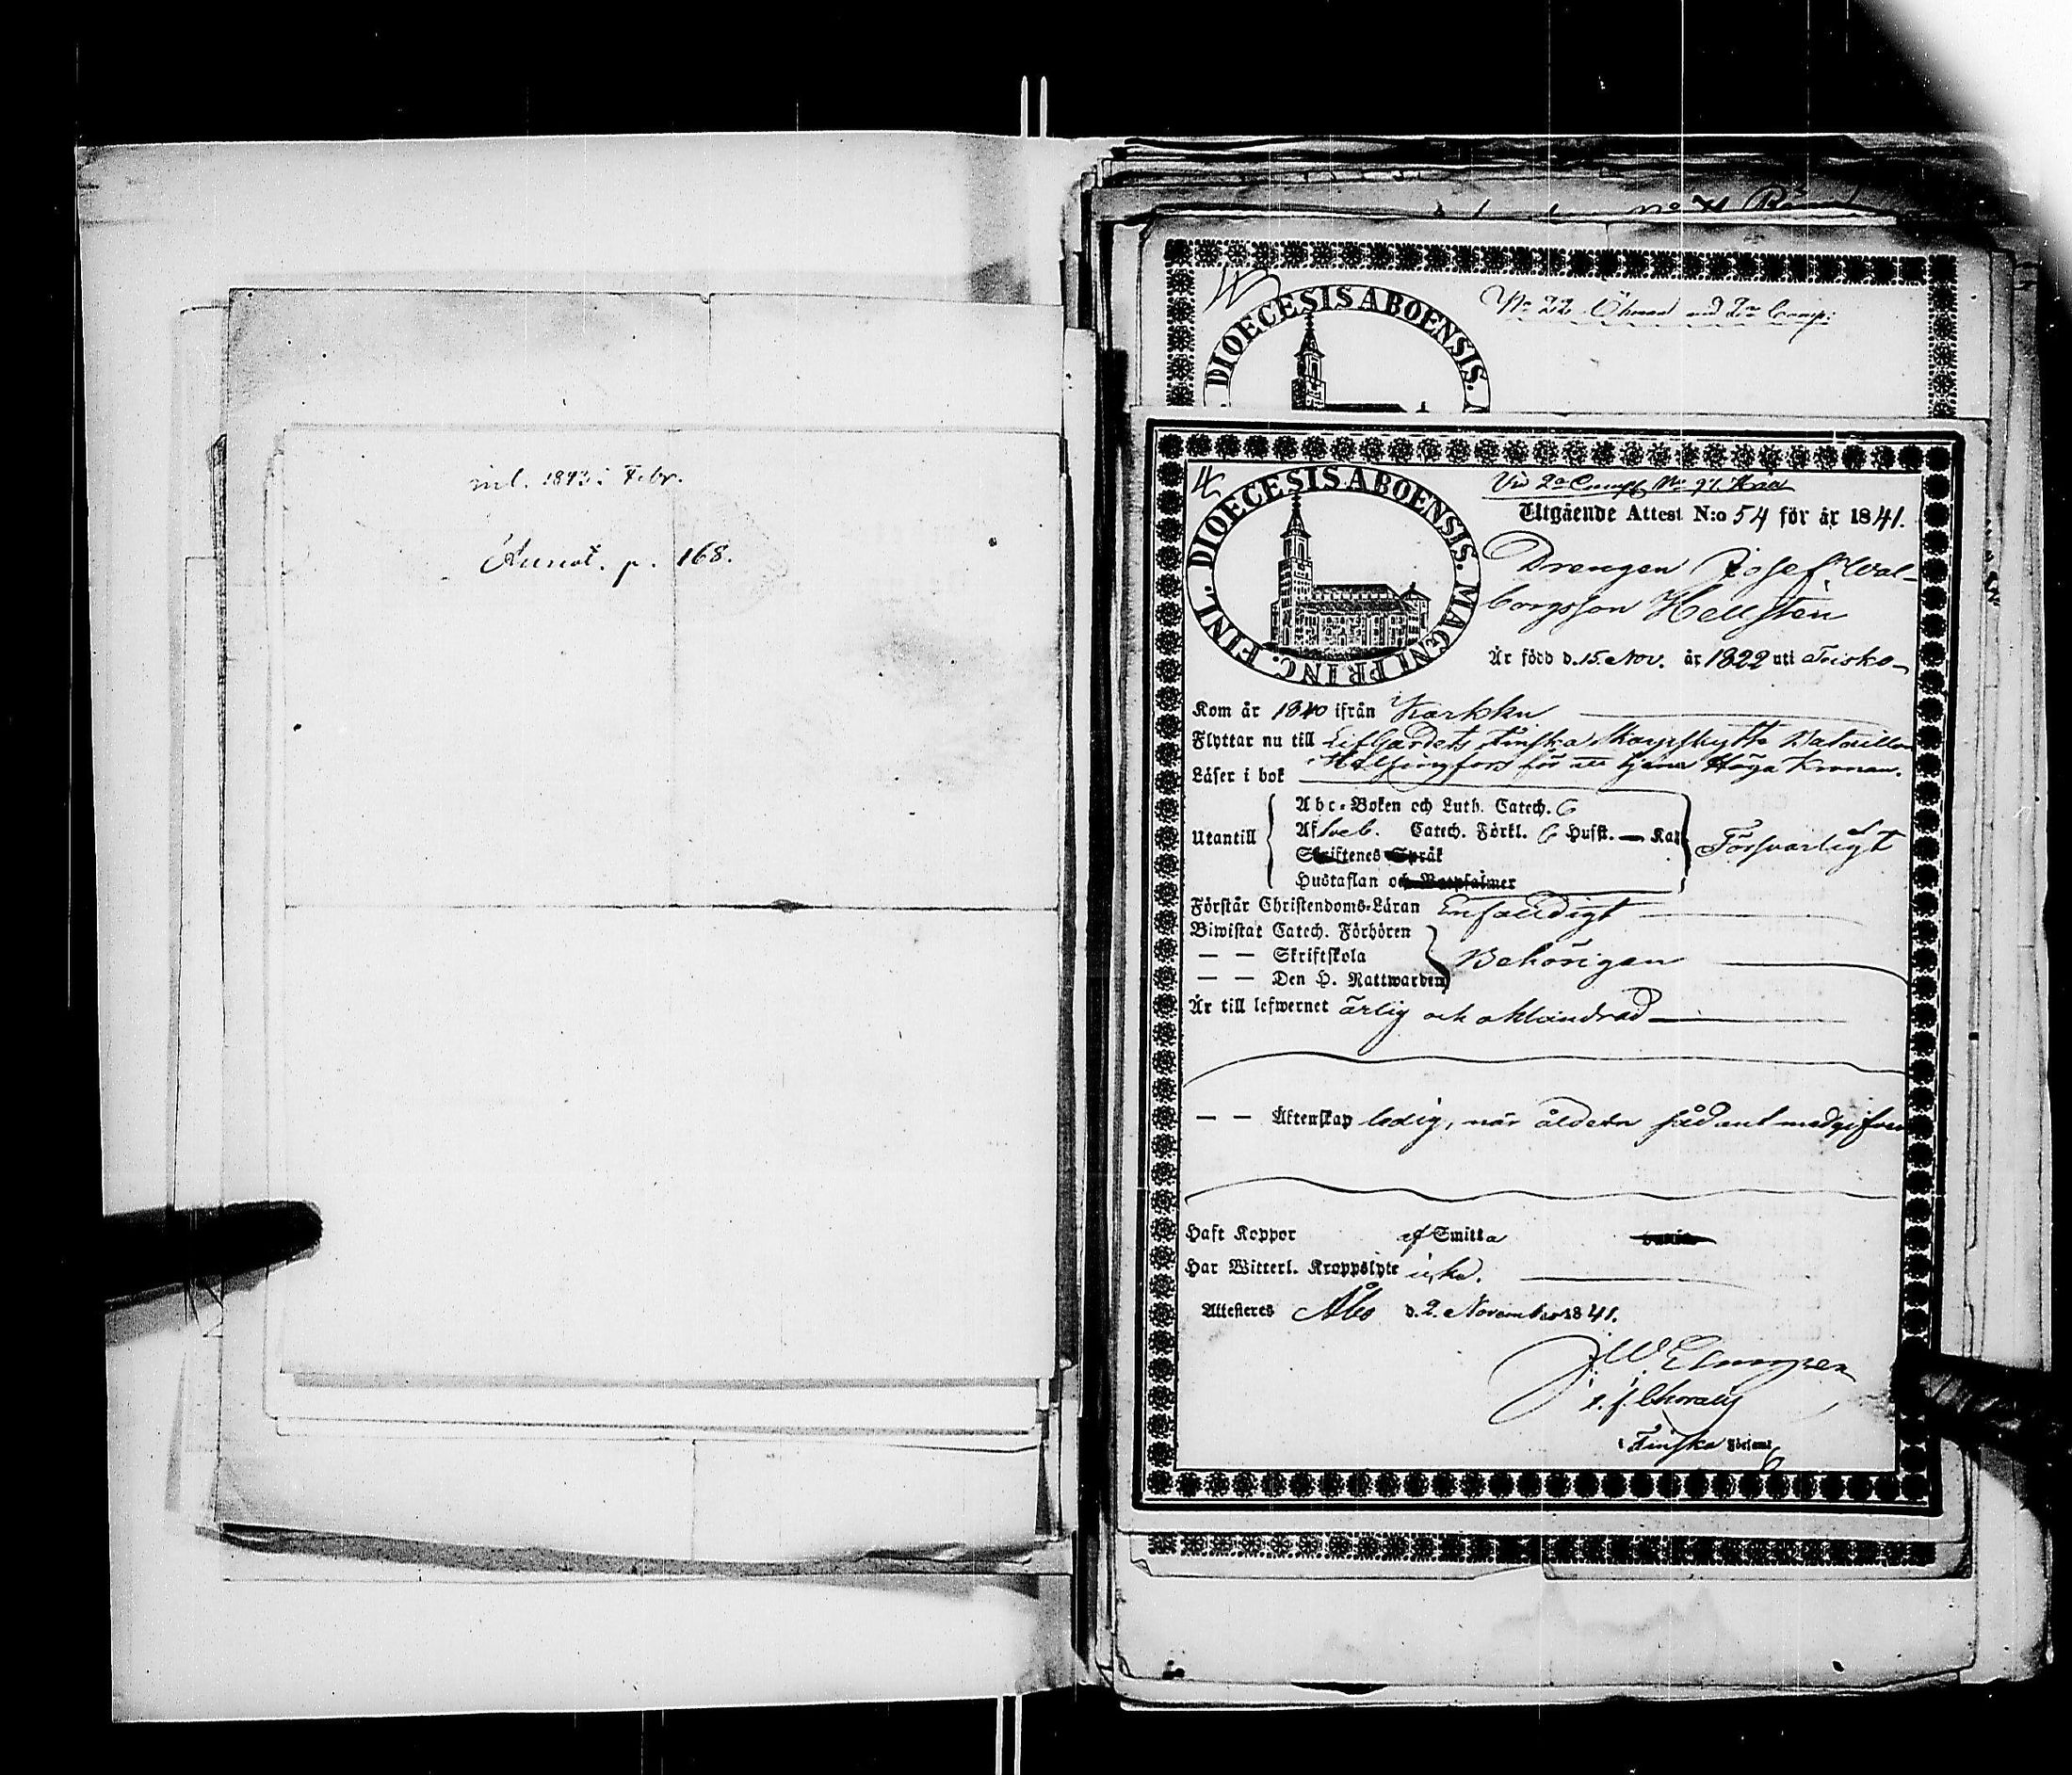 inl. 1843 i Febr.
Annot. p. 168.
DIOECESIS ABOENSIS.
No 22 Öhman vid 2n Comp:
4
DIOECESIS ABOENSIS. MAGNI PRINC. FINL.
Vid 2a Comp. No 97.
Utgående Attest N:o 54 för år 1841.
Drengen Josef Wal-
borgsson Hellsten
Är född d. 15. Nov. år 1822 uti
Kom år 1840 ifrån Karkku
Flyttar nu till Lif Gardets Finska Skarpskytte Bataillon
i Helsingfors för att tjena Höga Kronan.
Läser i bok
Abc-Boken och Luth. Catech.
Utantill Af Sveb. Catech. Förkl. Hufst. — Försvarligt
Skriftenes Språk
Hustaflan och Botpsalmer
Förstår Christendoms-Läran Enfaldigt
Biwistat Catech. Förhören
— — Skriftskola Behörigen
— — Den H. Nattwarden
Är till lefwernet ärlig och oklandrad
— — Äktenskap ledig, når åldern sådant medgifver
Haft Koppor af Smitta
Har Witterl. Kroppslyte icke.
Attesteres Åbo d. 2. November 1841.
i Finska Förs: